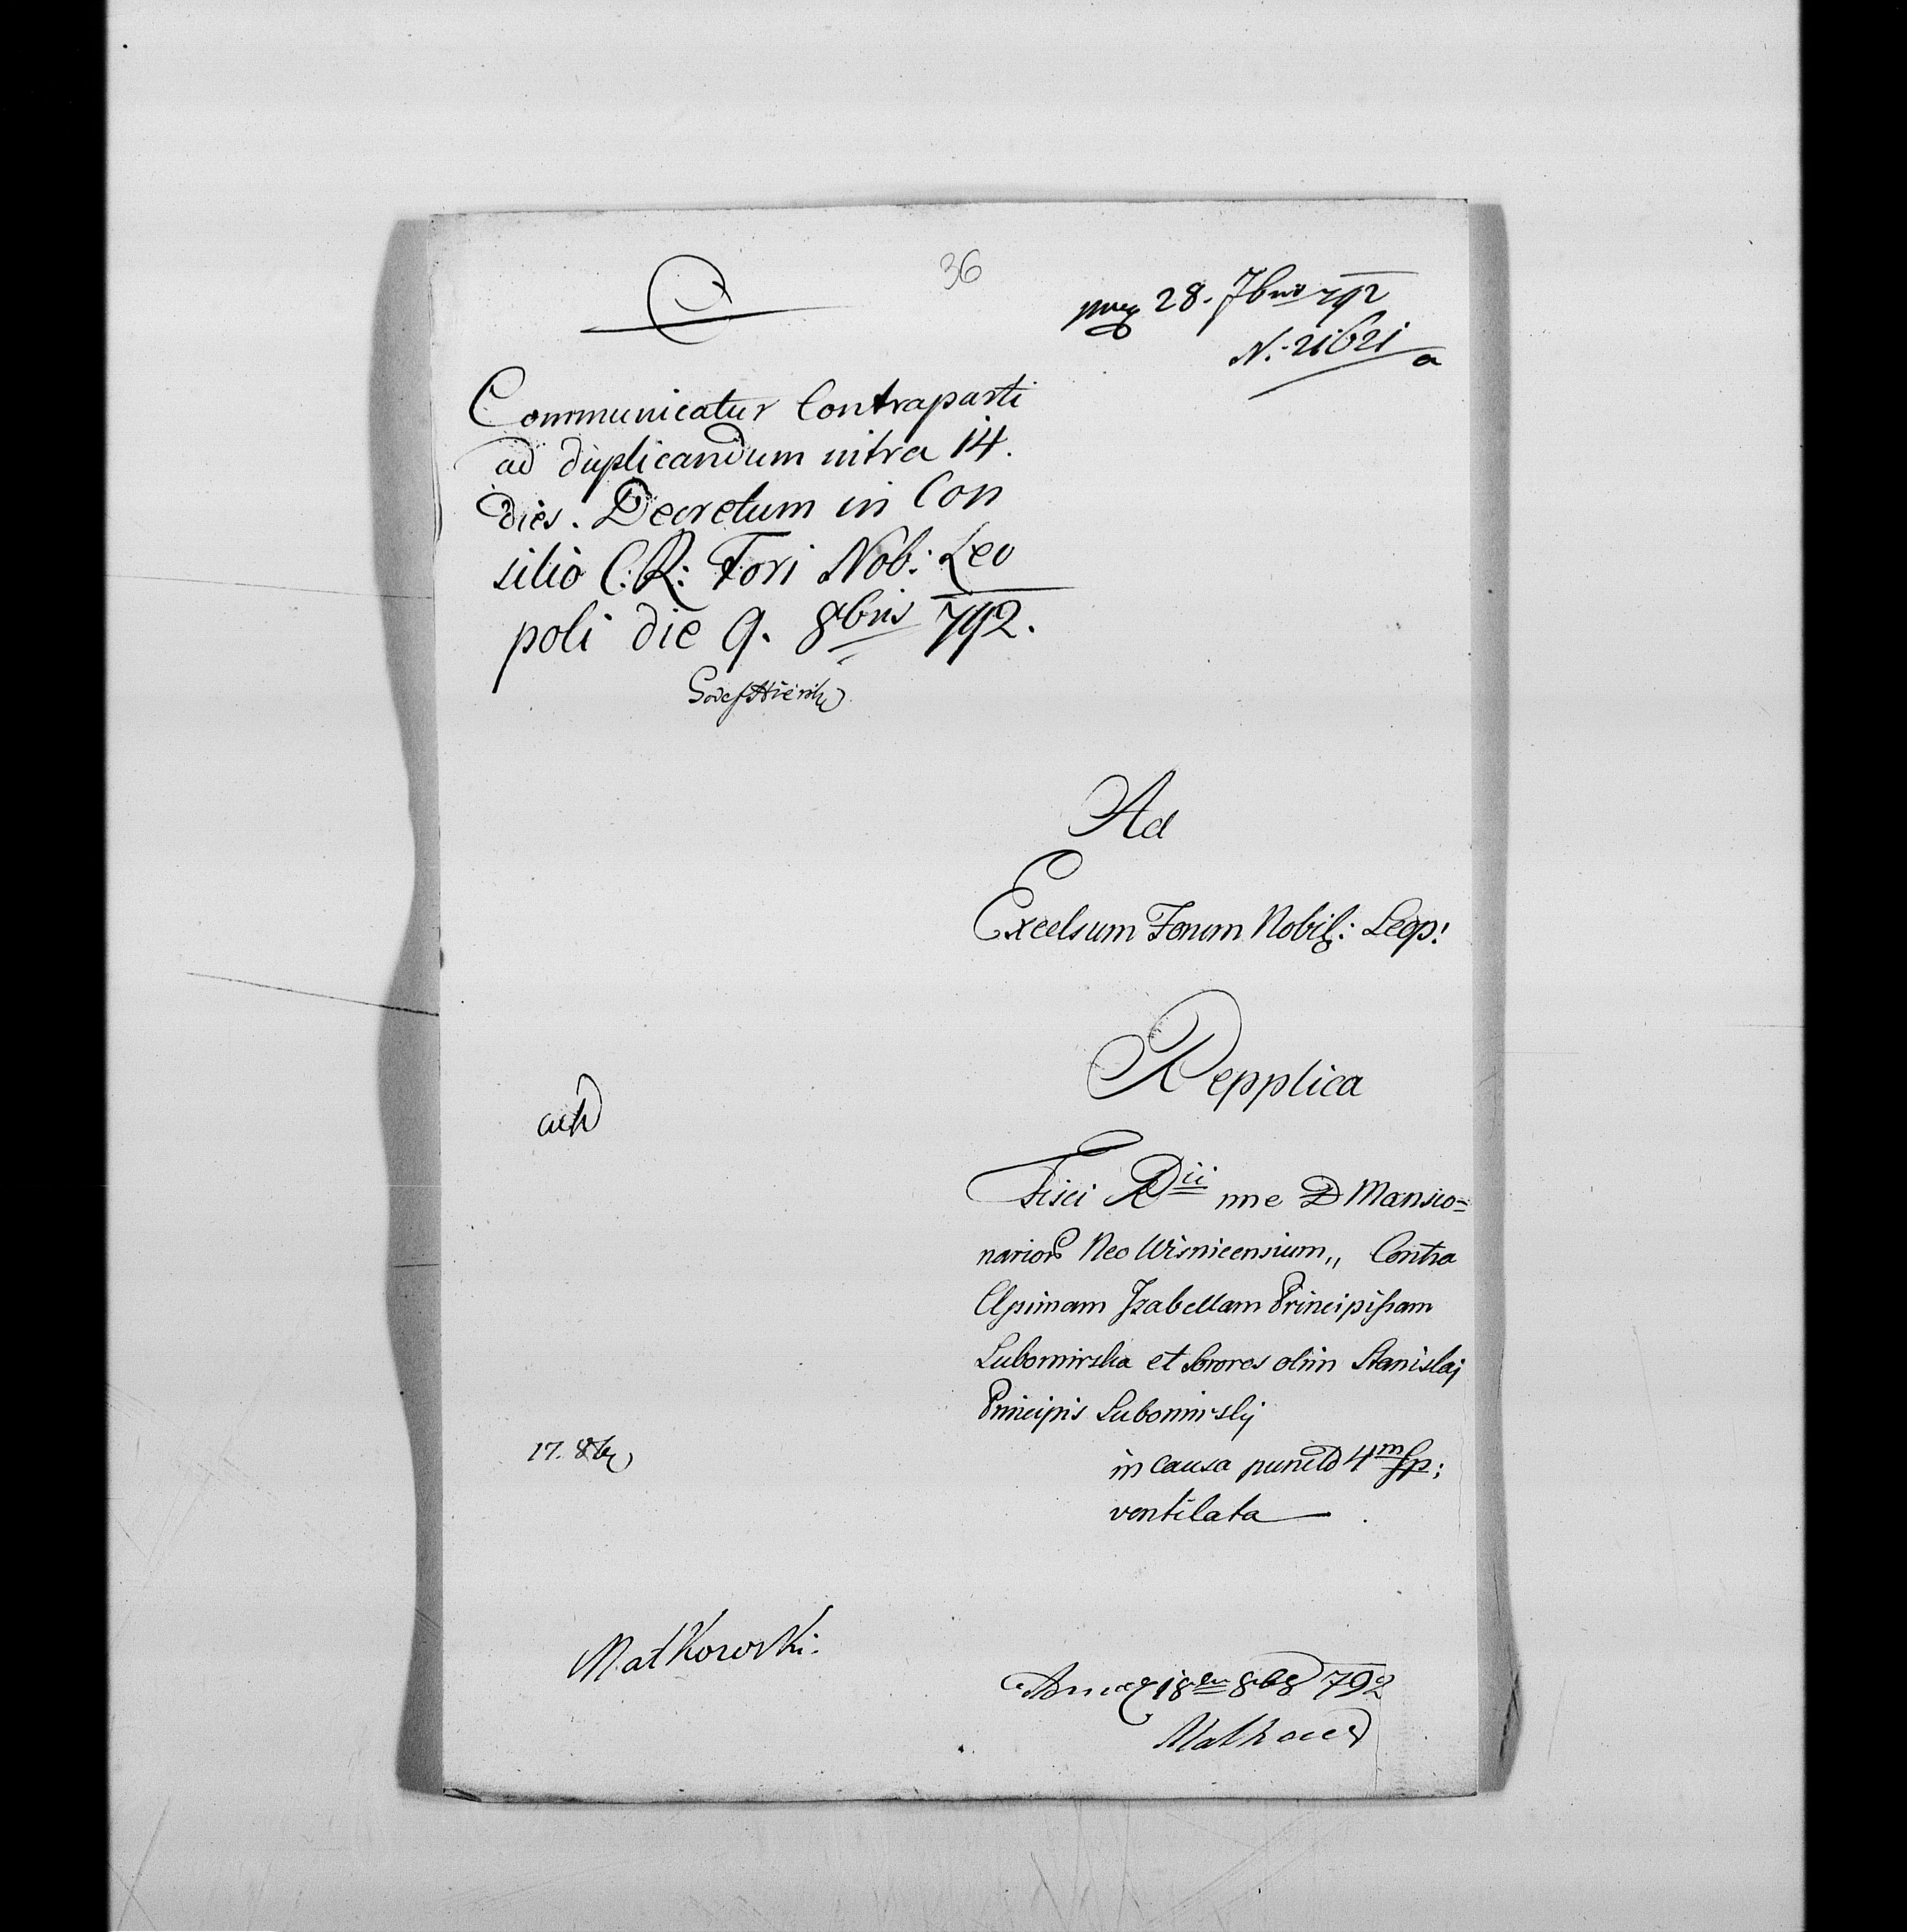 36
28. 7bris 792
N. 21621
a
Communicatur Contraparti
ad duplicandum intra 14.
dies. Decretum in Con
silio C: R: Fori Nob: Leo
poli die 9. 8bris 792.
Ad
Excelsum Forum Nobil: Leop:
Repplica
Fisci Rii nne D Mansio=
nariorũ Neo Wisnicensium,, Contra
Clsimam Izabellam Principissam
Lubomirska et Sorores olim Stanislaj
Principis Lubomirskj
in causa puncto 4m fp:
ventilata
17. 8b
Matkowski.
18 8b 792